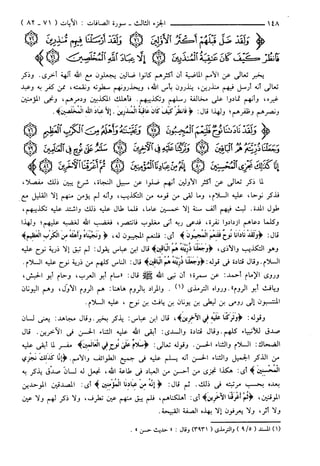 ١٤٨ الجزء الثالث - سورة الصافات: الآيات (٧١ - ٨٢)
﴿وَلَقَدْ ضَلَّ قَبْلَهُمْ أَكْثَرُ الْأَوَّلِينَ ﴿٧١﴾ وَلَقَدْ أَرْسَلْنَا فِيهِم مُّنذِرِينَ ﴿٧٢﴾
فَانظُرْ كَيْفَ كَانَ عَاقِبَةُ الْمُنذَرِينَ ﴿٧٣﴾ إِلَّا عِبَادَ اللَّهِ الْمُخْلَصِينَ ﴿٧٤﴾﴾
يخبر تعالى عن الأمم الماضية أن أكثرهم كانوا ضالين يجعلون مع الله آلهة أخرى. وذكر
تعالى أنه أرسل فيهم منذرين، ينذرون بأس الله، ويحذرونهم سطوته ونقمته، ممن كفر به وعبد
غيره، وأنهم تمادوا على مخالفة رسلهم وتكذيبهم. فأهلك المكذبين ودمرهم، ونجى المؤمنين
ونصرهم وظفرهم؛ ولهذا قال: ﴿فَانظُرْ كَيْفَ كَانَ عَاقِبَةُ الْمُنذَرِينَ . إِلَّا عِبَادَ اللَّهِ الْمُخْلَصِينَ﴾.
﴿وَلَقَدْ نَادَانَا نُوحٌ فَلَنِعْمَ الْمُجِيبُونَ ﴿٧٥﴾ وَنَجَّيْنَاهُ وَأَهْلَهُ مِنَ الْكَرْبِ الْعَظِيمِ ﴿٧٦﴾
وَجَعَلْنَا ذُرِّيَّتَهُ هُمُ الْبَاقِينَ ﴿٧٧﴾ وَتَرَكْنَا عَلَيْهِ فِي الْآخِرِينَ ﴿٧٨﴾ سَلَامٌ عَلَى نُوحٍ فِي الْعَالَمِينَ ﴿٧٩﴾
إِنَّا كَذَلِكَ نَجْزِي الْمُحْسِنِينَ ﴿٨٠﴾ إِنَّهُ مِنْ عِبَادِنَا الْمُؤْمِنِينَ ﴿٨١﴾ ثُمَّ أَغْرَقْنَا الْآخَرِينَ ﴿٨٢﴾﴾
لما ذكر تعالى عن أكثر الأولين أنهم ضلوا عن سبيل النجاة، شرع يبين ذلك مفصلا،
فذكر نوحا، عليه السلام، وما لقى من قومه من التكذيب، وأنه لم يؤمن منهم إلا القليل مع
طول المدة، لبث فيهم ألف سنة إلا خمسين عاما، فلما طال عليه ذلك واشتد عليه تكذيبهم،
وكلما دعاهم ازدادوا نفرة، فدعى ربه أنى مغلوب فانتصر، فغضب الله لغضبه عليهم؛ ولهذا
قال: ﴿وَلَقَدْ نَادَانَا نُوحٌ فَلَنِعْمَ الْمُجِيبُونَ﴾ أى: فلنعم المجيبون له، ﴿وَنَجَّيْنَاهُ وَأَهْلَهُ مِنَ الْكَرْبِ الْعَظِيمِ﴾
وهو التكذيب والأذى، ﴿وَجَعَلْنَا ذُرِّيَّتَهُ هُمُ الْبَاقِينَ﴾ قال ابن عباس يقول: لم تبق إلا ذرية نوح عليه
السلام. وقال قتادة فى قوله: ﴿وَجَعَلْنَا ذُرِّيَّتَهُ هُمُ الْبَاقِينَ﴾ قال: الناس كلهم من ذرية نوح عليه السلام.
وروى الإمام أحمد: عن سمرة؛ أن نبى الله ﷺ قال: «سام أبو العرب، وحام أبو الحبش،
ويافث أبو الروم». ورواه الترمذى (١) . والمراد بالروم هاهنا: هم الروم الأول، وهم اليونان
المنتسبون إلى رومى بن ليطى بن يونان بن يافث بن نوح ، عليه السلام.
وقوله: ﴿وَتَرَكْنَا عَلَيْهِ فِي الْآخِرِينَ﴾، قال ابن عباس: يذكر بخير. وقال مجاهد: يعنى لسان
صدق للأنبياء كلهم. وقال قتادة والسدى: أبقى الله عليه الثناء الحسن فى الآخرين. قال
الضحاك: السلام والثناء الحسن. وقوله تعالى: ﴿سَلَامٌ عَلَى نُوحٍ فِي الْعَالَمِينَ﴾ مفسر لما أبقى عليه
من الذكر الجميل والثناء الحسن أنه يسلم عليه فى جميع الطوائف والأمم. ﴿إِنَّا كَذَلِكَ نَجْزِي
الْمُحْسِنِينَ﴾ أى: هكذا نجزى من أحسن من العباد فى طاعة الله، نجعل له لسان صدق يذكر به
بعده بحسب مرتبته فى ذلك. ثم قال: ﴿إِنَّهُ مِنْ عِبَادِنَا الْمُؤْمِنِينَ﴾ أى: المصدقين الموحدين
الموقنين، ﴿ثُمَّ أَغْرَقْنَا الْآخَرِينَ﴾ أى: أهلكناهم، فلم يبق منهم عين تطرف، ولا ذكر لهم ولا عين
ولا أثر، ولا يعرفون إلا بهذه الصفة القبيحة.
(١) المسند (٩/٥) والترمذى (٣٩٣١) وقال: «حديث حسن» .